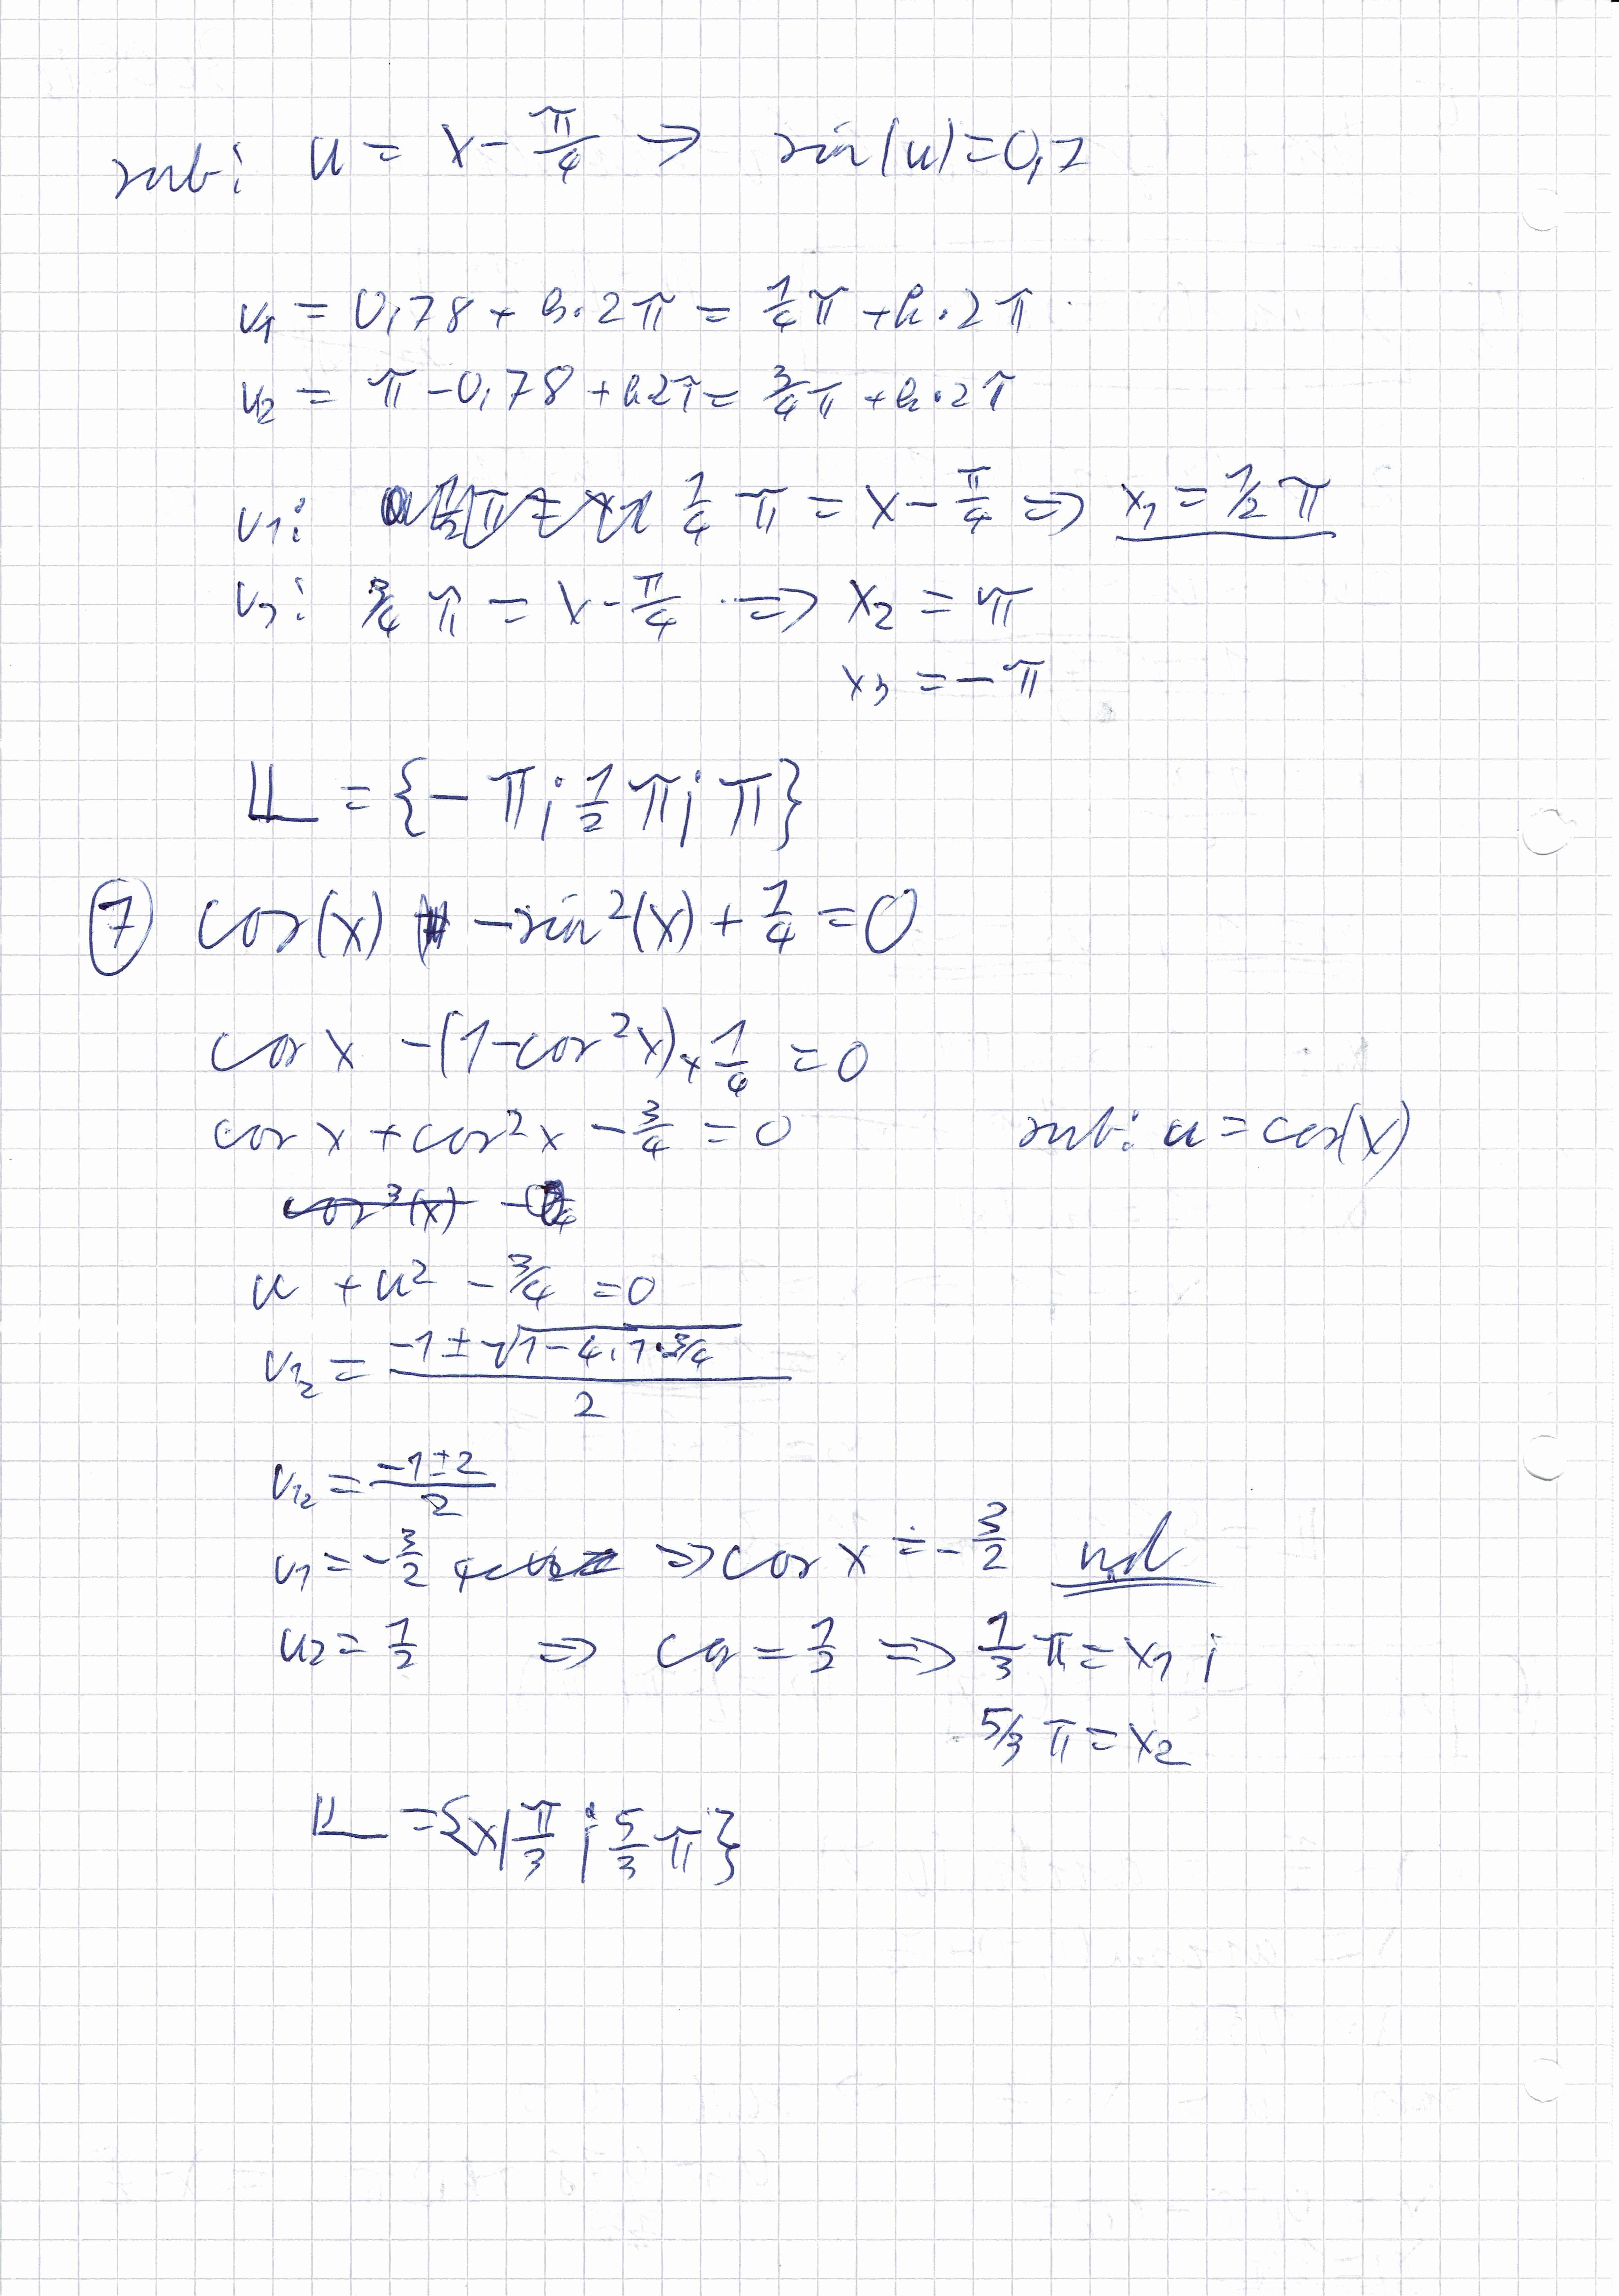 sub: u = x - π/4 => sin(u) = 0,7
u₁ = 0,78 + k·2π = 1/4 π + k·2π
u₂ = π - 0,78 + k·2π = 3/4 π + k·2π
u₁: 1/4 π = x - π/4 => x₁ = 1/2 π
u₂: 3/4 π = x - π/4 => x₂ = π
x₃ = -π
𝕃 = {-π; 1/2 π; π}
⑦ cos(x) - sin²(x) + 1/4 = 0
cos x - (1 - cos²x) + 1/4 = 0
cos x + cos²x - 3/4 = 0 sub: u = cos(x)
cos³(x) -
u + u² - 3/4 = 0
u₁₂ = (-1 ± √(1 - 4·1·3/4))/2
u₁₂ = (-1 ± 2)/2
u₁ = -3/2 => cos x = -3/2 n.d
u₂ = 1/2 => cos = 1/2 => 1/3 π = x₁ ;
5/3 π = x₂
𝕃 = {x| π/3 ; 5/3 π}